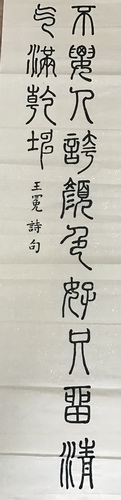 不要人誇顏色好只留清
气滿乾坤
王冕詩句